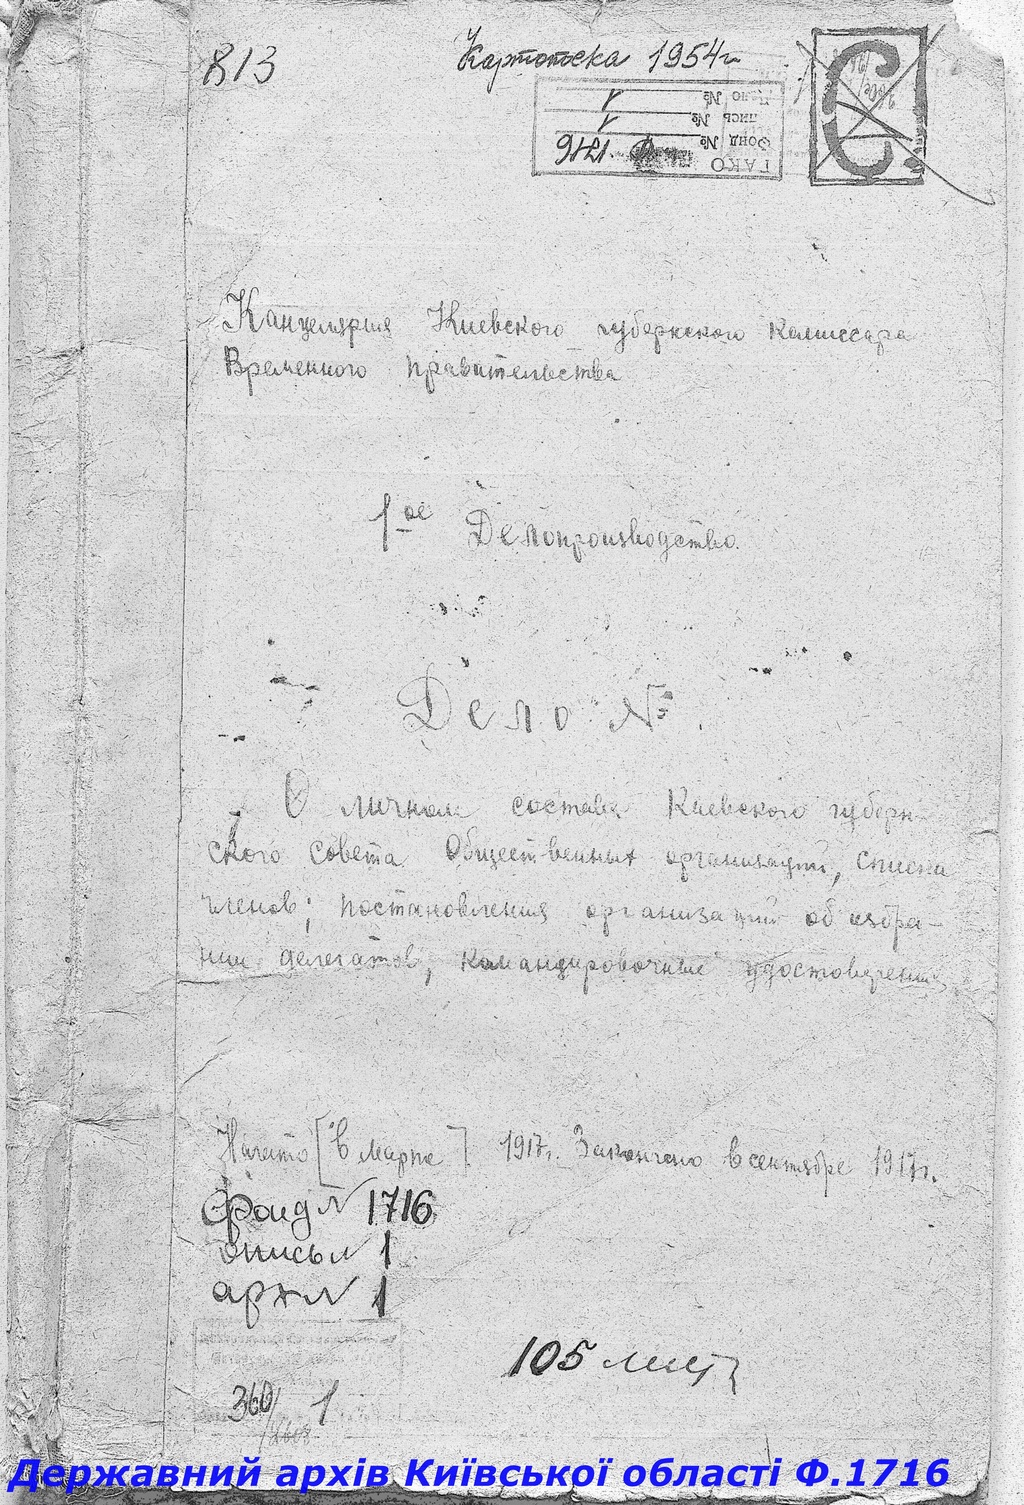 813
Картотека 1954г
С
ГАКО
Фонд № Ф 1716
пись № 1
Дело № 1
Канцелярия Киевского губернского Комиссара
Временного правительства
1ое Делопроизводство.
Дело №
О личном составе Киевского губерн-
ского Совета Общественных организаций, списки
членов; постановления организаций об избра-
нии делегатов; командировочные удостоверения
Начато [в марте] 1917г. Закончено в сентябре 1917г.
Фонд № 1716
опись № 1
арх № 1
105 лист
360 1
Державний архів Київської області Ф.1716